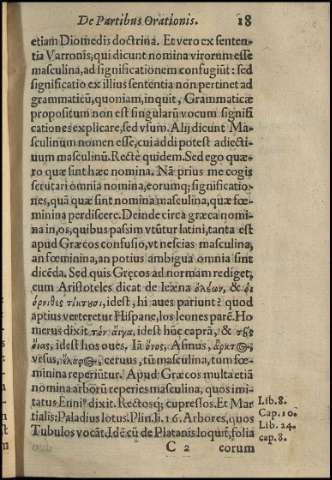 De Partibus Orationis. 18
etiam Diomedis doctrina. Et vero ex senten-
tia Varronis, qui dicunt nomina virorum esse
masculina, ad significationem confugiũt: sed
significatio ex illius sententia non pertinet ad
grammaticũ, quoniam, inquit, Grammaticæ
propositum non est singularũ vocum signifi
cationes explicare, sed vsum. Alij dicunt Ma-
sculinum nomen esse, cui addi potest adiecti-
uum masculinũ. Rectè quidem. Sed ego quæ-
ro quæ sint hæc nomina. Nã prius me cogis
scrutari omnia nomina, eorumq; significatio-
nes, quã quæ sint nomina masculina, quæ fœ-
minina perdiscere. Deinde circa græca nomi-
na in, os, quibus passim vtũtur latini, tanta est
apud Græcos confusio, vt nescias masculina,
an fœminina, an potius ambigua omnia sint
dicẽda. Sed quis Gręcos ad normam rediget,
cum Aristoteles dicat de leæna & οἱ
ὄρνιθες τίκτουσι, idest, hi aues pariunt? quod
aptius verteretur Hispane, los leones parẽ. Ho
merus dixit τὸν αἶγα, idest hũc caprã, & τὰς
idest hos oues. Iã ὄνος, Asinus, ἄρκτος,
vrsus, ἔλαφος, ceruus, tũ masculina, tum fœ-
minina reperiũtur. Apud Græcos multa etiã
nomina arborũ reperies masculina, quos imi-
tatus Enniꝰ dixit. Rectosq; cupressos. Et Mar
tialis: Paladios lotus. Plin. li. 16. Arbores, quos
Tubulos vocãt. Idẽ cũ de Platanis loquit', folia
Lib. 8.
Cap. 10.
Lib. 24.
cap. 8.
C 2 eorum